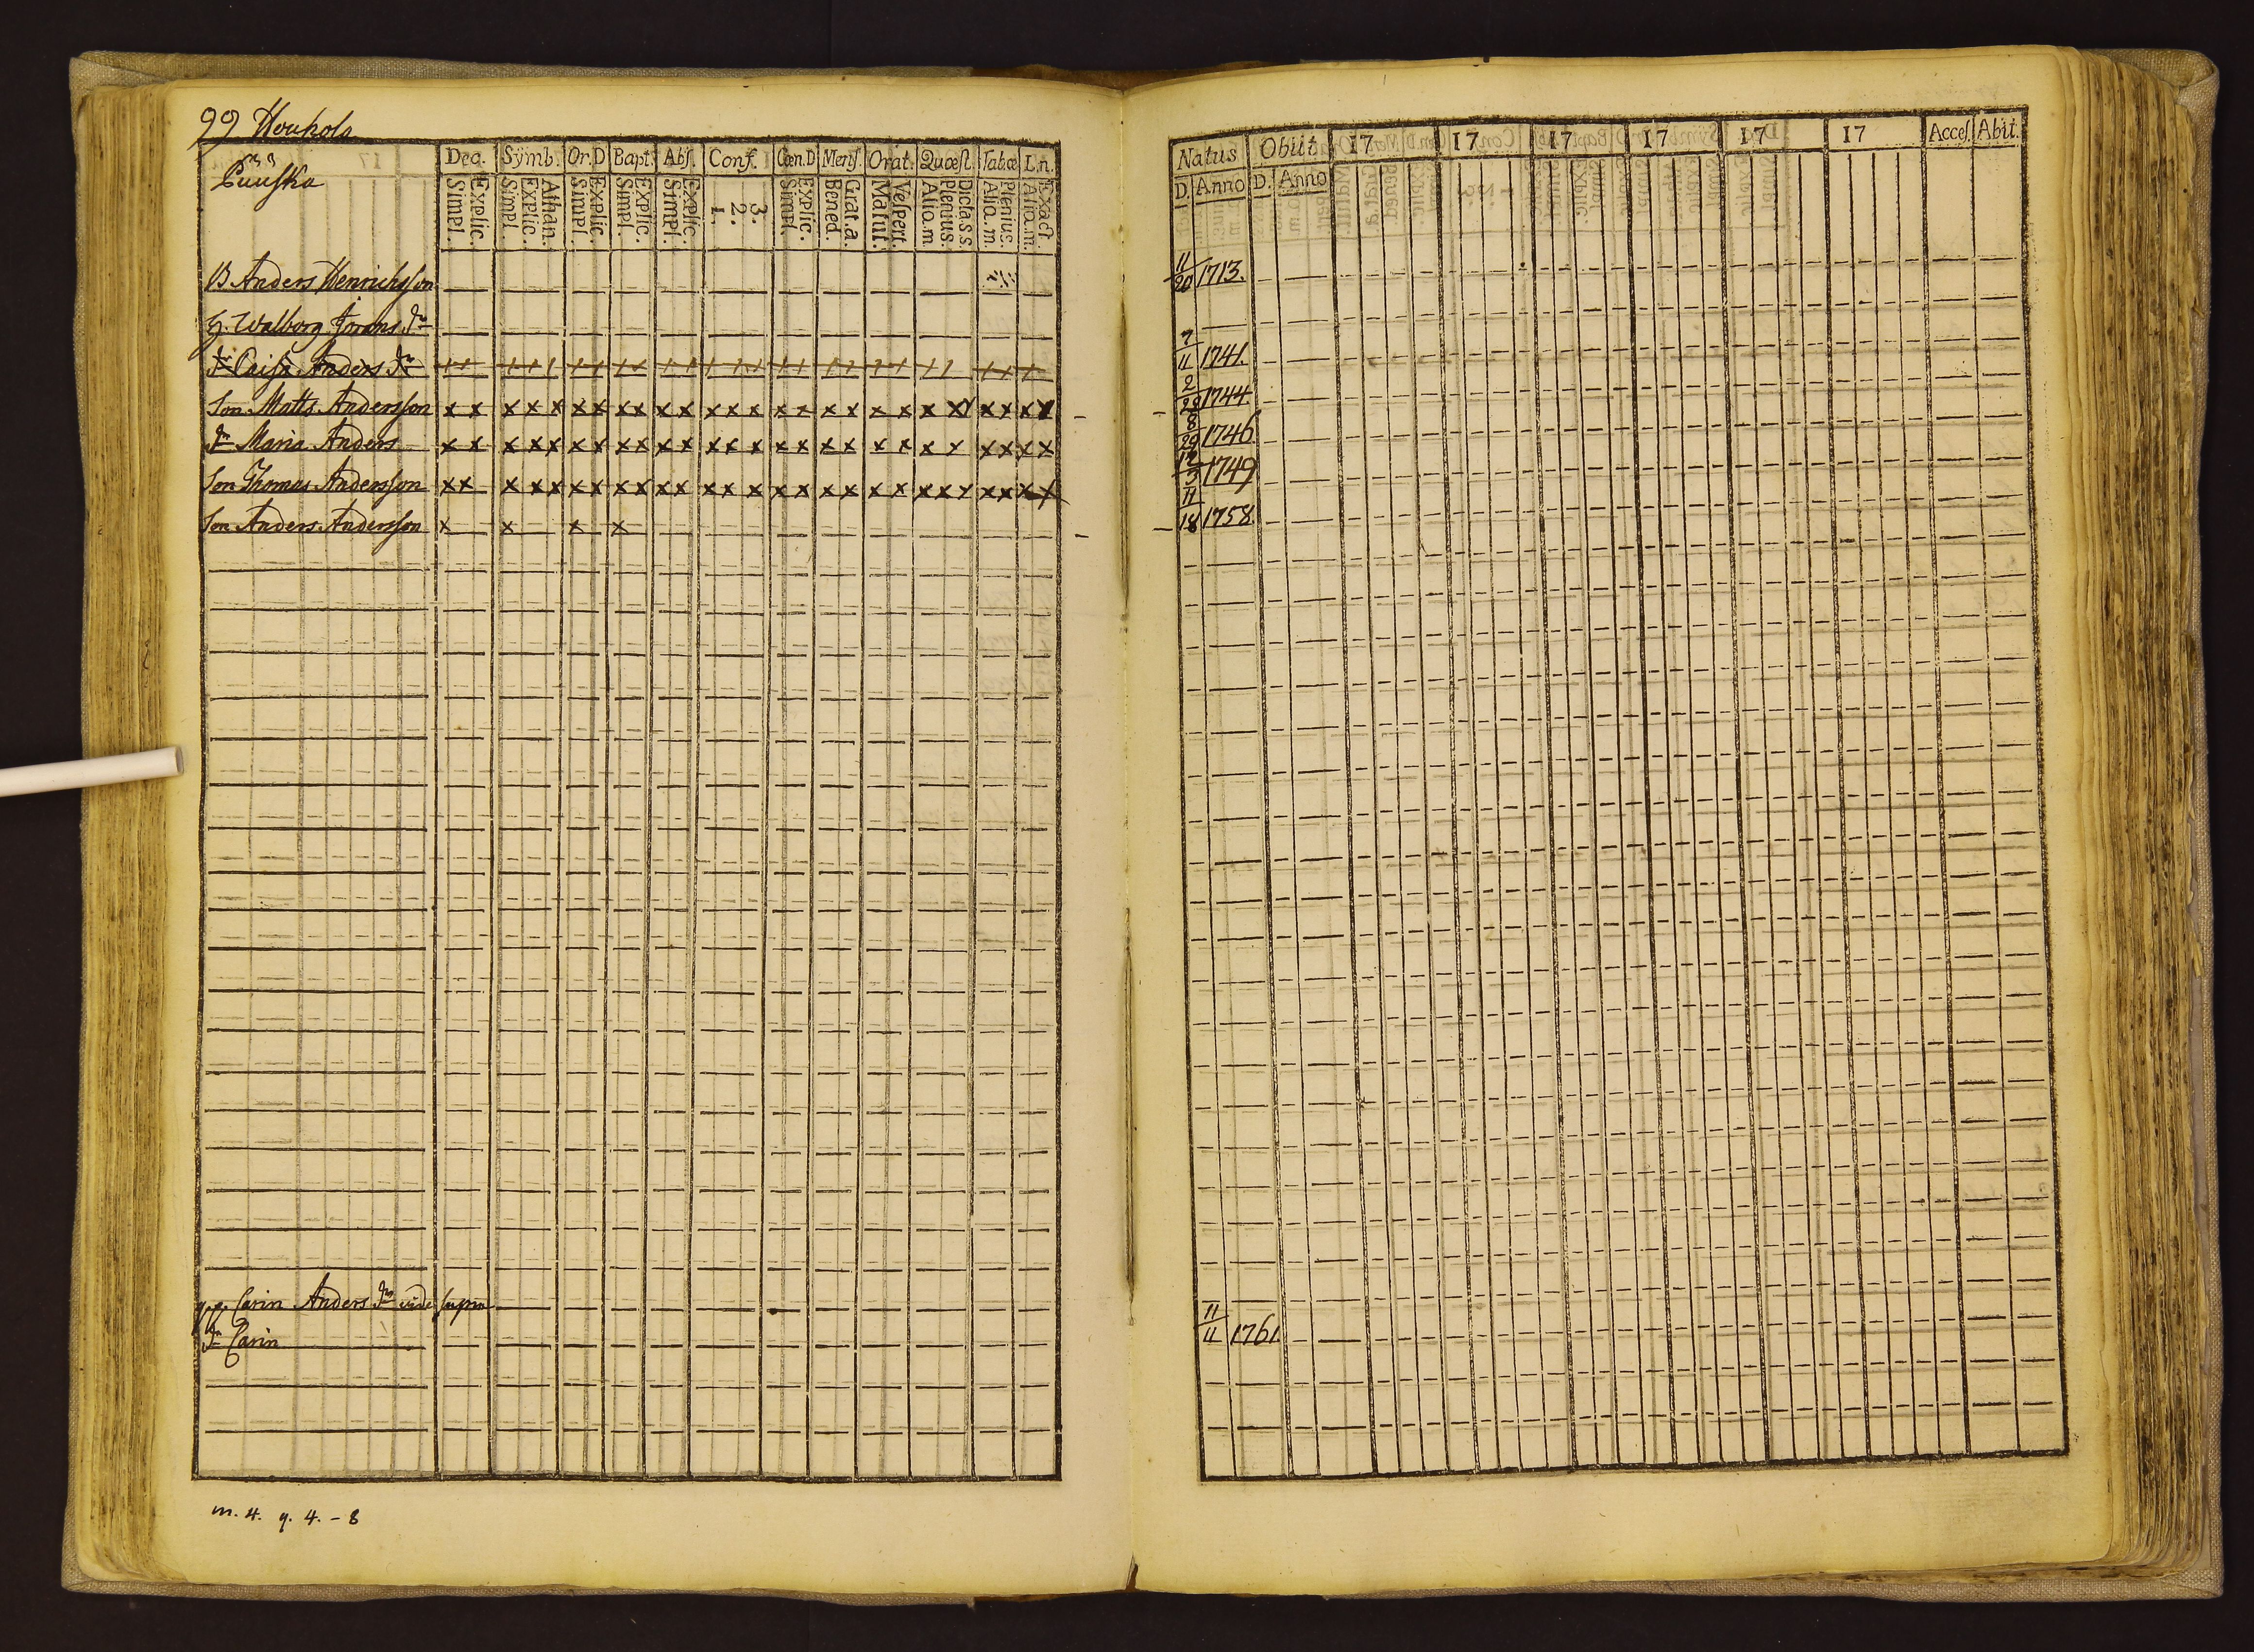 99 Houkola
Puuska
Dec. Sÿmb. Or.D Bapt. Abſ. Conf. Cœn.D Menſ. Orat. Quæſt. Tab.œ L.n.
Simpl. Explic. Simpl. Explic. Athan. Simpl. Explic. Simpl. Explic. Simpl. Explic. 1. 2. 3. Simpl. Explic. Bened. Grat.a. Matut. Veſpert. Alio.m. Plenius. Dicta.s.s. Alia.m. Plenius. Alia.m. Exact.
B Anders Henrichsson
H. Walborg Jörans dr
dr Caisa Anders dr
Son Matts Andersson x x x x x x x x x x x x x x x x x x x x x x x x x x
dr Maria Anders x x x x x x x x x x x x x x x x x x x x x x x x x
Son Thomas Andersson x x x x x x x x x x x x x x x x x x x x x x x x x x
Son Anders Andersson x x x x
Carin Anders dr vide supra
dr Carin
m. 4. q. 4. - 8
Natus Obiit 17 17 17 17 17 17 Acceſ. Abiit.
D. Anno D. Anno
11/20 1713.
7/11 1741.
2/28 1744
8/29 1746
12/3 1749
11/18 1758.
11/11 1761